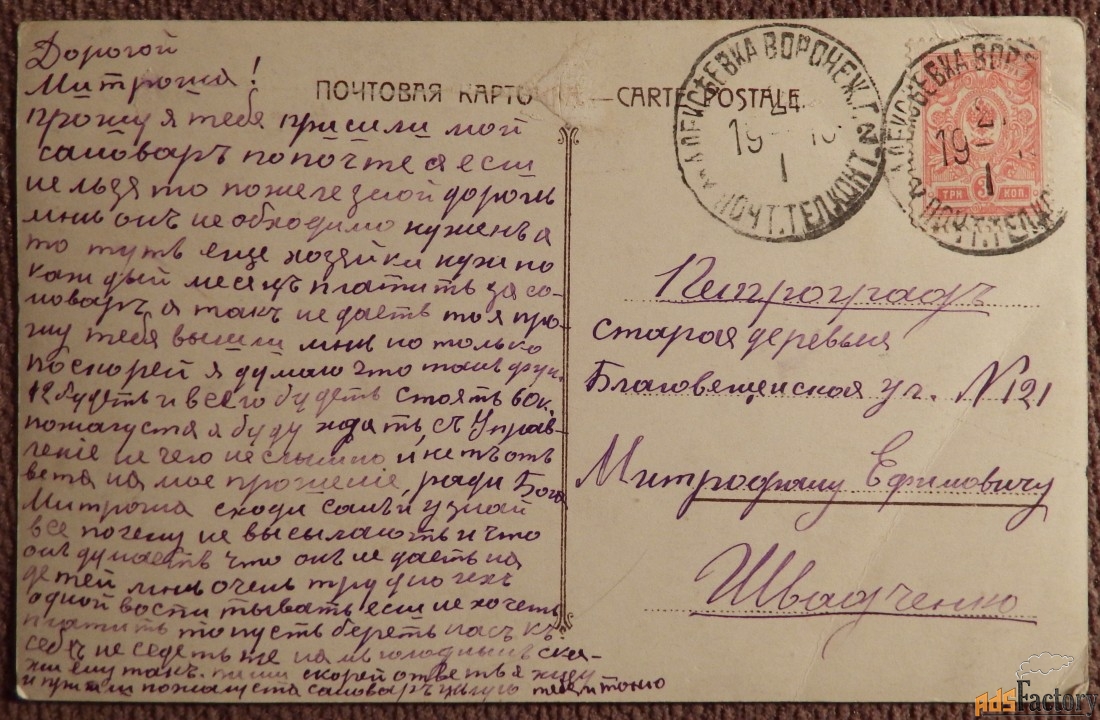 Дорогой
Митроша!
прошу я тебя пришли мой
самоваръ по почте а если
нельзя то пожелезной дороги
мнѣ онъ не обходимо нуженъ а
то тутъ еще хозяйки нужно
каждый месяцъ платить за са-
моваръ а такъ не даетъ то я про-
шу тебя вышли мнѣ но только
поскорей я думаю что тамъ фун.
12 будетъ и всего будетъ стоять 60к.
пожалуста я буду ждать, съ Управ-
ленiе не чего не слышно и нетъ отъ
вета на мое прошенiе, ради Бога
Митроша сходи самъ и узнай
все почему не высылаютъ и что
онъ думаетъ что онъ не даетъ на
детей мнѣ очень трудно ихъ
одной воспитывать если не хочетъ
платить то пусть беретъ насъ къ
себѣ не седеть же намъ голоднымъ ска-
жи ему такъ. пиши скорей ответъ я жду
и пришли пожалуста самоваръ целую тебя и тоню
ПОЧТОВАЯ КАРТО
CARTE POSTALE.
АЛЕКСѢЕВКА ВОРОНЕЖ. Г.
24
19
1
ПОЧТ. ТЕЛ. КОНТ.
АЛЕКСѢЕВКА ВОР
19
1
ПОЧТ. ТЕЛ. КО
ТРИ 3 КОП.
Петроградъ
старая деревня
Благовещенская ул. № 121
Митрофану Ефимовичу
Швадченко
AdsFactory